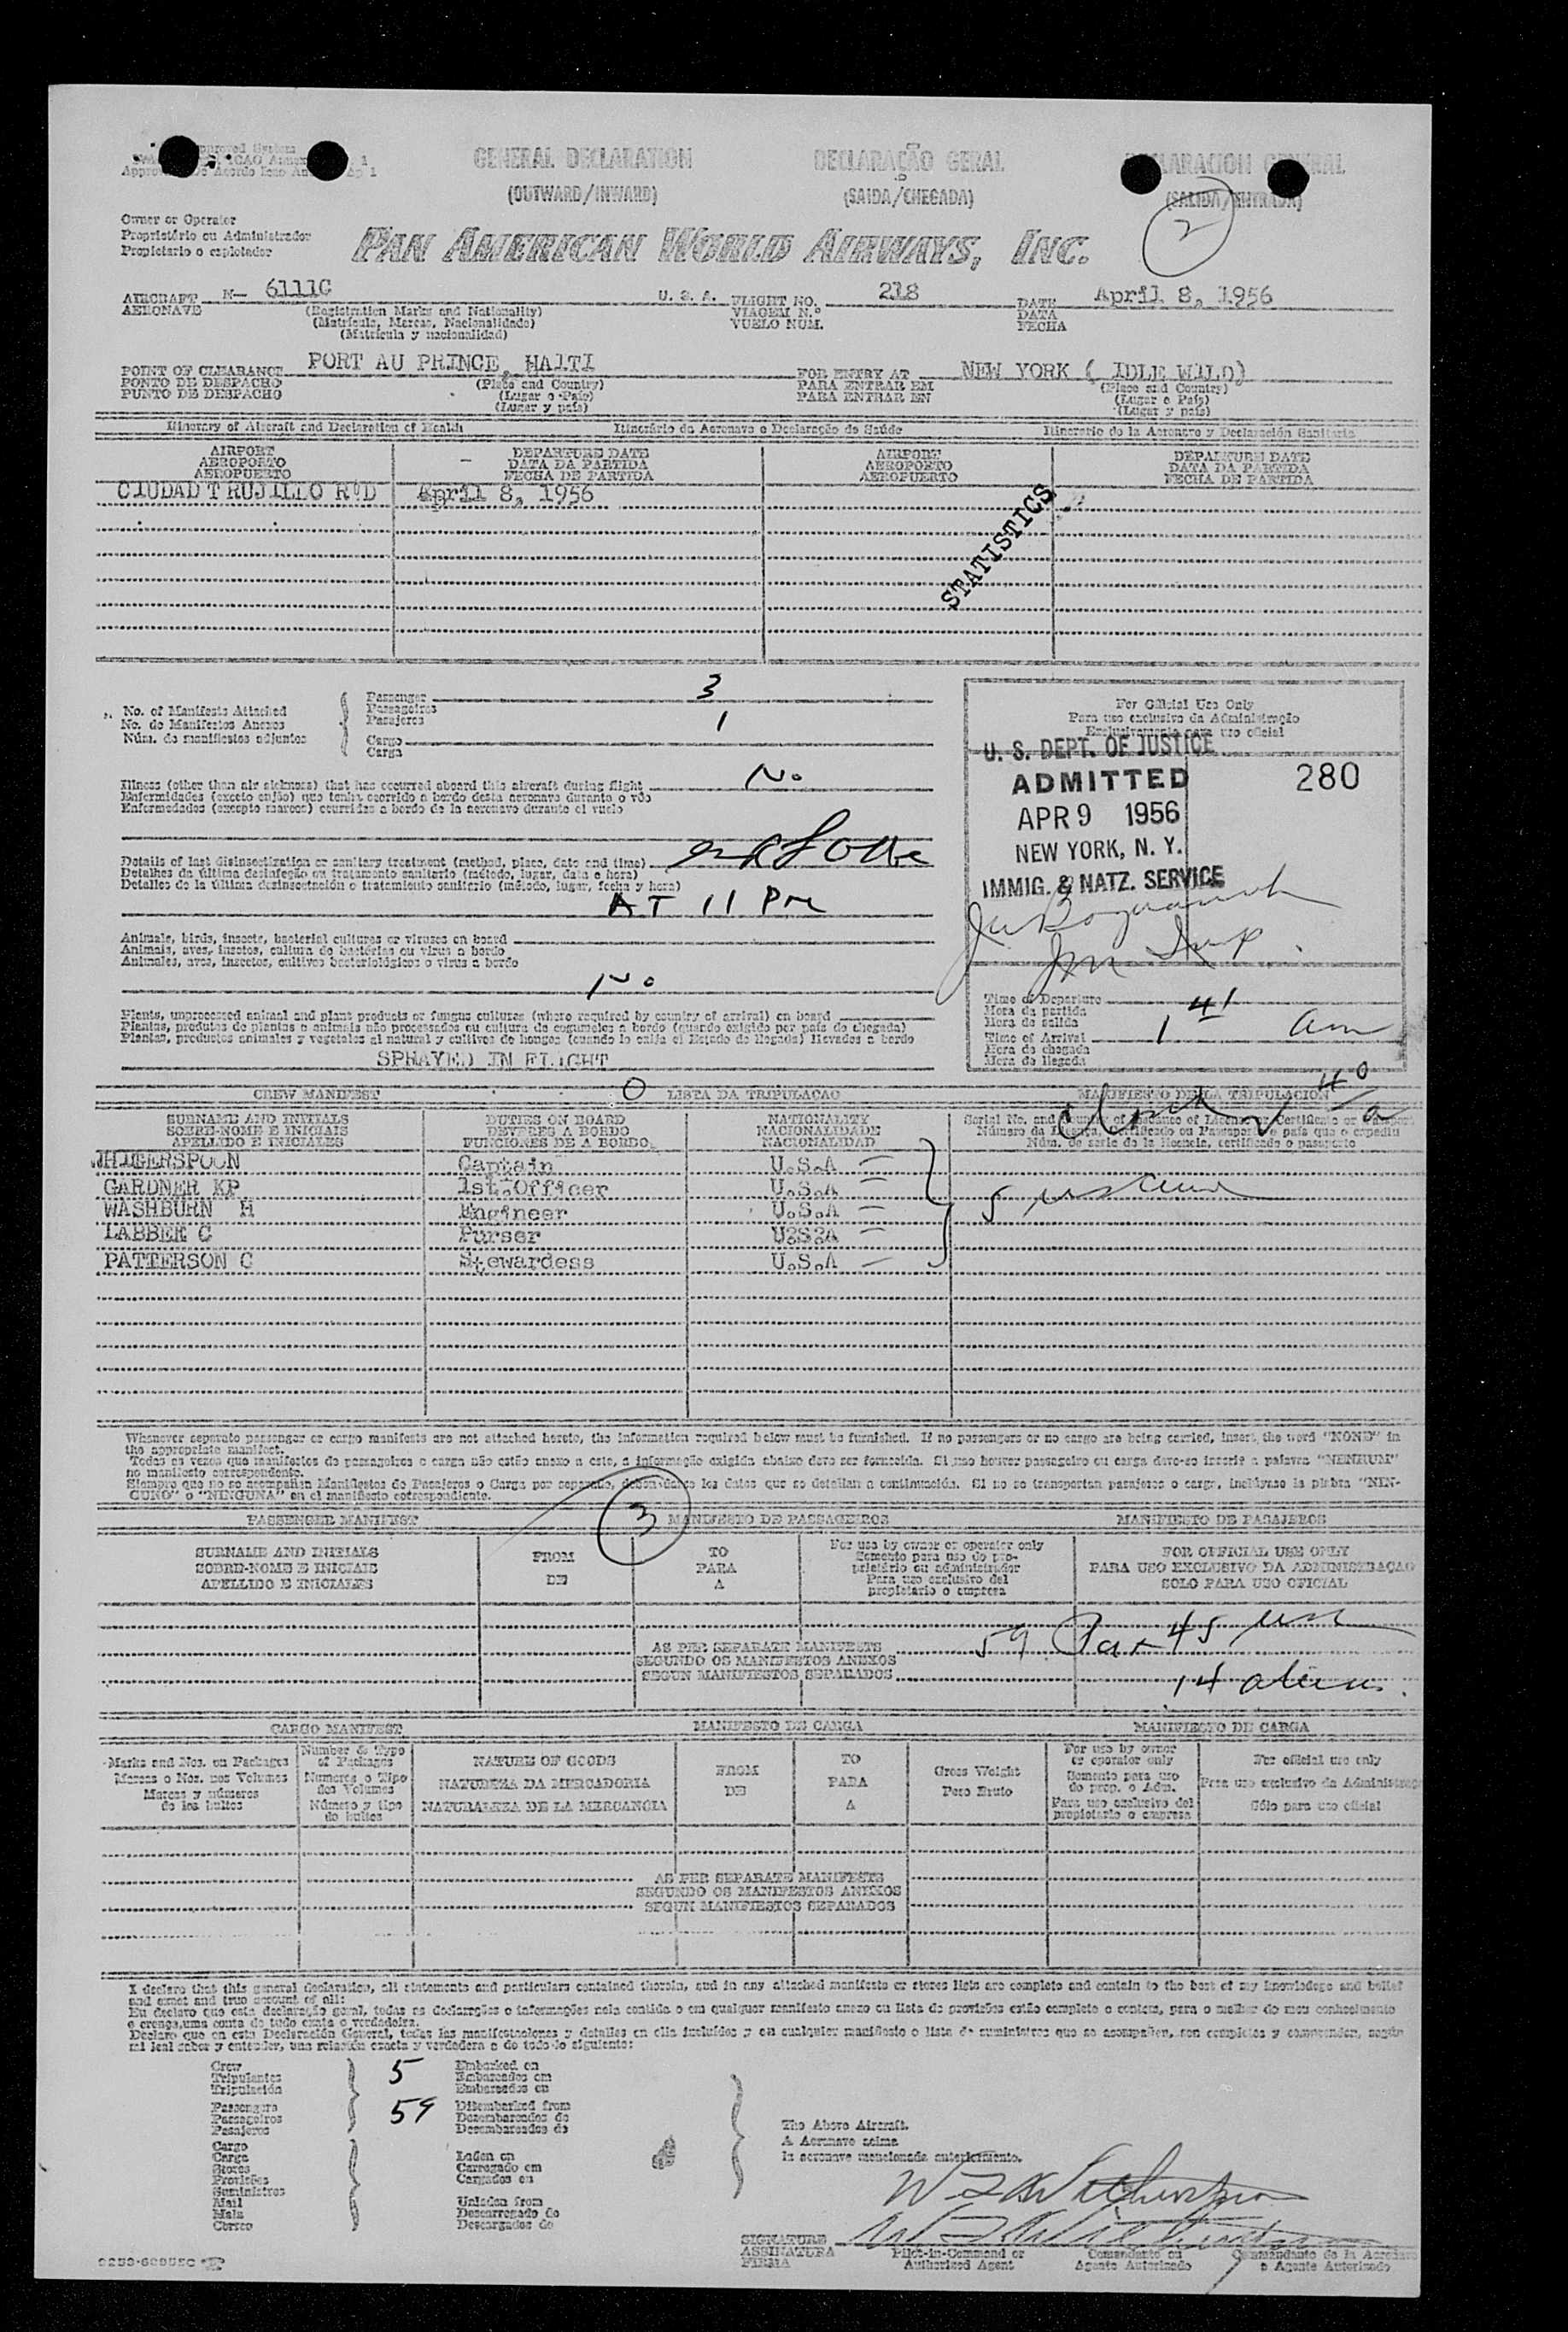 GENERAL DECLARATION
(OUTWARD/INWARD)
DECLARAÇÃO GERAL
(SAIDA/CHEGADA)
(SALIDA/ENTRADA)
2
Owner or Operator
Proprietário ou Administrador
Propietario o explotador
PAN AMERICAN WORLD AIRWAYS, INC.
AIRCRAFT N- 6111C U. S. A. FLIGHT NO. 218 DATE April 8, 1956
AERONAVE (Registration Marks and Nationality) VIAGEM N.º DATA
(Matricula, Marcas, Nacionalidade) VUELO NUM. FECHA
(Matrícula y nacionalidad)
POINT OF CLEARANCE PORT AU PRINCE, HAITI FOR ENTRY AT NEW YORK ( IDLE WILD)
PONTO DE DESPACHO (Place and Country) PARA ENTRAR EM (Place and Country)
PUNTO DE DESPACHO (Lugar e País) PARA ENTRAR EN (Lugar e País)
(Lugar y país) (Lugar y país)
Itinerary of Aircraft and Declaration of Health Itinerário da Aeronave e Declaração de Saúde Itinerario de la Aeronave y Declaración Sanitaria
AIRPORT DEPARTURE DATE AIRPORT DEPARTURE DATE
AEROPORTO DATA DA PARTIDA AEROPORTO DATA DA PARTIDA
AEROPUERTO FECHA DE PARTIDA AEROPUERTO FECHA DE PARTIDA
CIUDAD TRUJILLO R.D April 8, 1956
STATISTICS
No. of Manifests Attached
No. de Manifestos Anexos
Núm. de manifiestos adjuntos
Passenger 3
Passageiros
Pasajeros 1
Cargo
Carga
For Official Use Only
Para uso exclusivo da Administração
Exclusivamente para uso oficial
U. S. DEPT. OF JUSTICE
ADMITTED 280
APR 9 1956
NEW YORK, N. Y.
IMMIG. & NATZ. SERVICE
Illness (other than air sickness) that has occurred aboard this aircraft during flight No
Enfermidades (exceto enjôo) que tenha ocorrido a bordo desta aeronave durante o vôo
Enfermedades (excepto mareos) ocurridas a bordo de la aeronave durante el vuelo
Details of last disinsectization or sanitary treatment (method, place, date and time)
Detalhes da última desinfeção ou tratamento sanitario (método, lugar, data e hora)
Detalles de la última desinsectación o tratamiento sanitario (método, lugar, fecha y hora)
AT 11 PM
Animals, birds, insects, bacterial cultures or viruses on board
Animais, aves, insetos, cultura de bactérias ou virus a bordo
Animales, aves, insectos, cultivos bacteriológicos o virus a bordo
No
Plants, unprocessed animal and plant products or fungus cultures (where required by country of arrival) on board
Plantas, produtos de plantas e animais não processados ou cultura de cogumelos a bordo (quando exigido por país de chegada)
Plantas, productos animales y vegetales al natural y cultivos de hongos (cuando lo exija el Estado de llegada) llevados a bordo
SPRAYED IN FLIGHT
Time of Departure
Hora da partida
Hora de salida
Time of Arrival 1 41 am
Hora da chegada
Hora de llegada
CREW MANIFEST 0 LISTA DA TRIPULACAO MANIFIESTO DE LA TRIPULACION
SURNAME AND INITIALS DUTIES ON BOARD NATIONALITY
SOBRE-NOME E INICIAIS DEVERES A BORDO NACIONALIDADE
APELLIDO E INICIALES FUNCIONES DE A BORDO NACIONALIDAD
Captain U.S.A
GARDNER KP 1st.Officer U.S.A
WASHBURN H Engineer U.S.A
LABBER C Purser U.S.A
PATTERSON C Stewardess U.S.A
5
Whenever separate passenger or cargo manifests are not attached hereto, the information required below must be furnished. If no passengers or no cargo are being carried, insert the word "NONE" in
the appropriate manifest.
Todas as vezes que manifestos de passageiros e carga não estão anexo a este, a informação exigida abaixo deve ser fornecida. Si nao houver passageiro ou carga deve-se inserir a palavra "NENHUM"
no manifesto correspondente.
Siempre que no se acompañen Manifiestos de Pasajeros o Carga por separado, deben darse los datos que se detallan a continuación. Si no se transportan pasajeros o cargo, inclúyase la plabra "NIN-
GUNO" o "NINGUNA" en el manifiesto correspondiente.
3
PASSENGER MANIFEST MANIFESTO DE PASSAGEIROS MANIFIESTO DE PASAJEROS
SURNAME AND INITIALS FROM TO For use by owner or operator only FOR OFFICIAL USE ONLY
SOBRE-NOME E INICIAIS DE PARA Somente para uso do pro- PARA USO EXCLUSIVO DA ADMINISTRAÇAO
APELLIDO E INICIALES A prietário ou administrador SOLO PARA USO OFICIAL
Para uso exclusivo del
propietario o empresa
AS PER SEPARATE MANIFESTS 59 Pax 45 usc
SEGUNDO OS MANIFESTOS ANEXOS
SEGUN MANIFIESTOS SEPARADOS 14 aliens.
CARGO MANIFEST MANIFESTO DE CARGA MANIFIESTO DE CARGA
Marks and Nos. on Packages Number & Type of Packages NATURE OF GOODS FROM TO Gross Weight For use by owner or operator only For official use only
Marcas e Nos. nos Volumes Numeros e Tipo dos Volumes NATUREZA DA MERCADORIA DE PARA Peso Bruto Somente para uso do prop. o Adm. Para uso exclusivo da Administraçao
Marcas y números de los bultos Número y tipo de bultos NATURALEZA DE LA MERCANCIA A Para uso exclusivo del propietario o empresa Sólo para uso oficial
AS PER SEPARATE MANIFESTS
SEGUNDO OS MANIFESTOS ANEXOS
SEGUN MANIFIESTOS SEPARADOS
I declare that this general declaration, all statements and particulars contained therein, and in any attached manifests or stores lists are complete and contain to the best of my knowledge and belief
and exact and true account of all:
Eu declaro que esta declaração geral, todas as declarações e informações nela contida e em qualquer manifesto anexo ou lista de provisões estão completo e contem, para o melhor do meu conhecimento
e crença, uma conta de tudo exata e verdadeira.
Declaro que en esta Declaración General, todas las manifestaciones y detalles en ella incluídos y en cualquier manifiesto o lista de suministros que se acompañen, son completos y comprenden, según
mi leal saber y entender, una relación exacta y verdadera e de todo lo siguiente:
Crew 5 Embarked on
Tripulantes Embarcados em
Tripulación Embarcados en
Passengers 59 Disembarked from
Passageiros Desembarcados de
Pasajeros Desembarcados de
Cargo
Carga
Stores
Provisões
Suministros
Mail
Mala
Correo
Laden on
Carregado em
Cargados en
Unladen from
Descarregado de
Descargados de
The Above Aircraft.
A Aeronave acima
la aeronave mencionada anteriormente.
SIGNATURE
ASSINATURA Pilot-in-Command or Comandante ou Commandante de la Aeronave
FIRMA Authorized Agent Agente Autorizado o Agente Autorizado